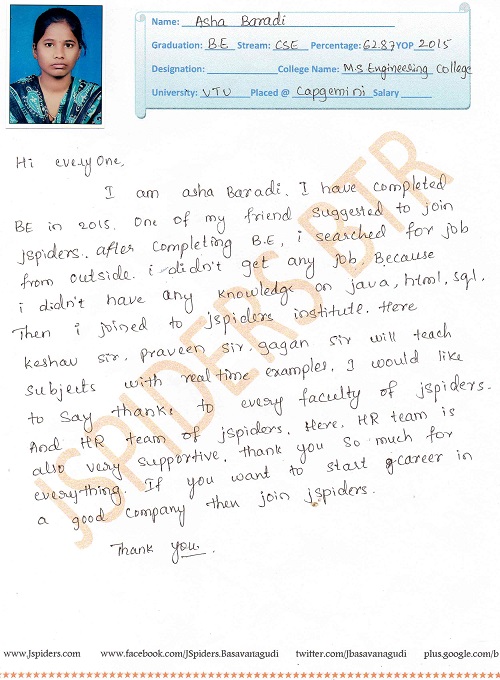 Name: Asha Baradi
Graduation: B.E Stream: CSE Percentage: 62.87 YOP 2015
Designation: College Name: M.S Engineering College
University: VTU Placed @ Capgemini Salary
Hi everyOne,
I am asha Baradi. I have completed
BE in 2015. One of my friend suggested to join
jspiders. after completing B.E, i searched for job
from outside. i didn't get any job. Because
i didn't have any knowledge on java, html, sql.
Then i joined to jspiders institute. Here
keshav sir, praveen sir, gagan sir will teach
subjects with real time examples. I would like
to say thanks to every faculty of jspiders.
And HR team of jspiders. Here, HR team is
also very supportive. thank you so much for
everything. If you want to start career in
a good company then join jspiders.
Thank you.
JSPIDERS BTR
www.Jspiders.com www.facebook.com/JSpiders.Basavanagudi twitter.com/Jbasavanagudi plus.google.com/b